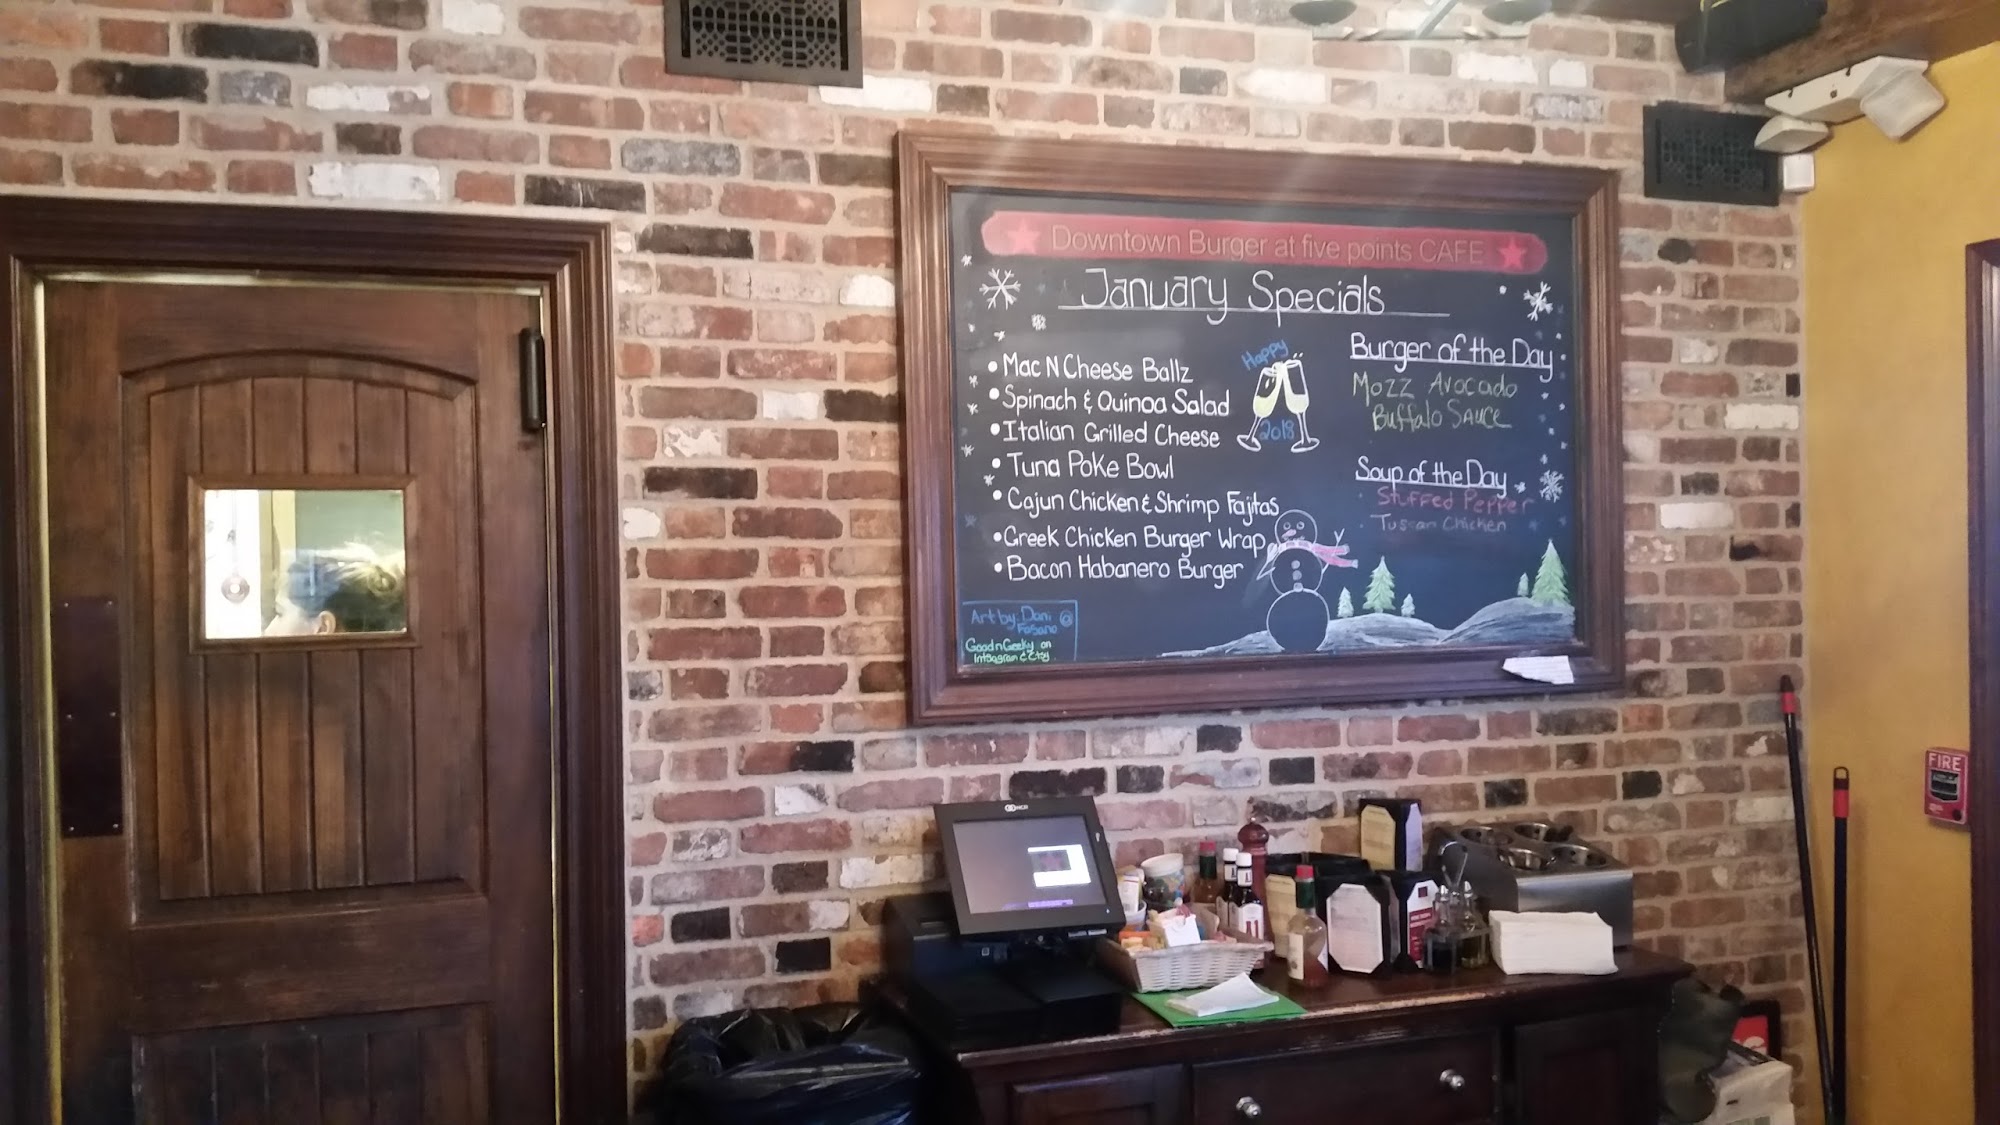 Downtown Burger at five points CAFE
January Specials
• Mac N Cheese Ballz
• Spinach & Quinoa Salad
• Italian Grilled Cheese
• Tuna Poke Bowl
• Cajun Chicken & Shrimp Fajitas
• Greek Chicken Burger Wrap
• Bacon Habanero Burger
Happy
2018
Burger of the Day
Mozz Avocado
Buffalo Sauce
Soup of the Day
Stuffed Pepper
Tuscan Chicken
Art by: Dani @
Fasano
GoodnGeeky on
Intsagram & Etsy
NCR
FIRE